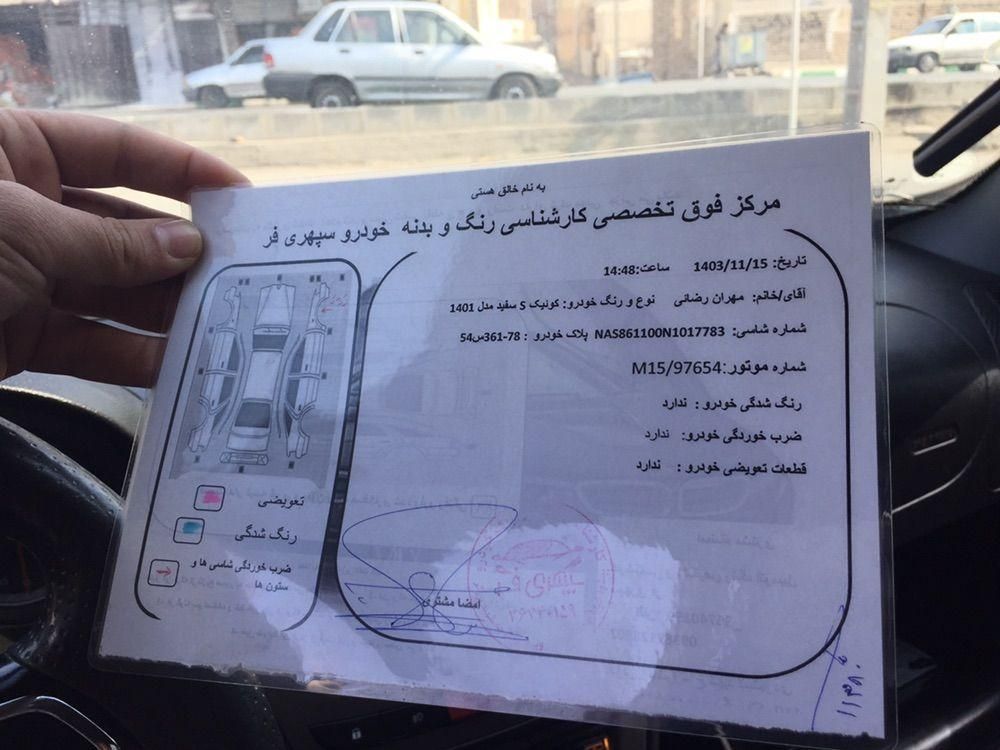 به نام خالق هستی
مرکز فوق تخصصی کارشناسی رنگ و بدنه خودرو سپهری فر
تاریخ: 1403/11/15 ساعت:14:48
آقای/خانم: مهران رضائی نوع و رنگ خودرو: کوئیک S سفید مدل 1401
شماره شاسی: NAS861100N1017783 پلاک خودرو : 78-361س54
شماره موتور:M15/97654
رنگ شدگی خودرو : ندارد
ضرب خوردگی خودرو: ندارد
قطعات تعویضی خودرو : ندارد
تعویضی
رنگ شدگی
ضرب خوردگی شاسی ها و
ستون ها
امضا مشتری